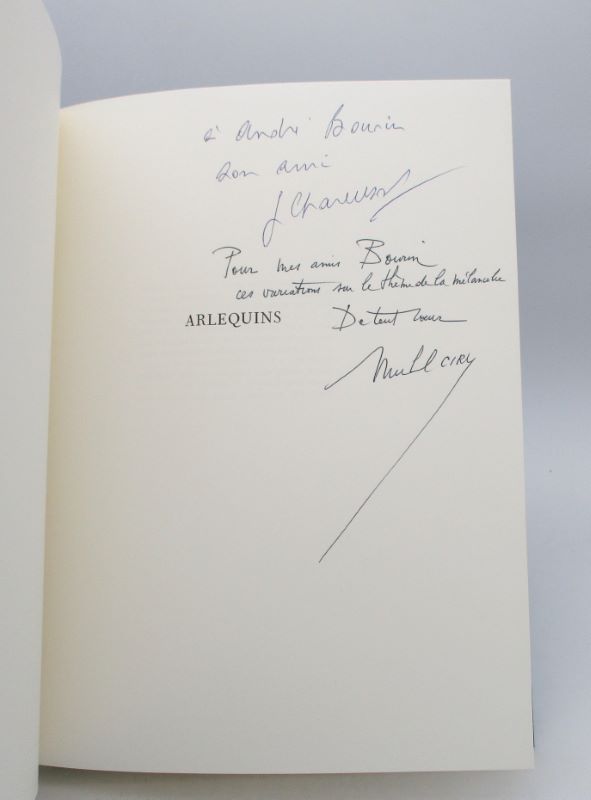 à André Bourin
son ami
J Charensol
Pour mes amis Bourin
ces variations sur le thème de la mélancolie
ARLEQUINS
De tout cœur
CIRY